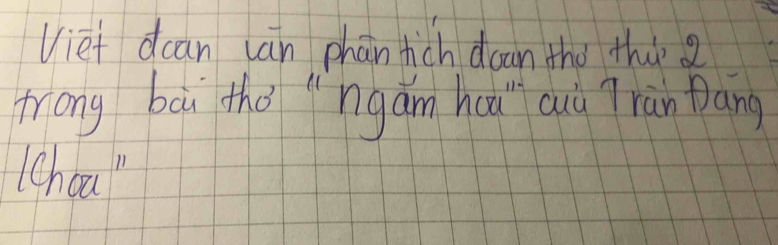 Viết đoạn văn phân tích đoạn thơ thứ 2
trong bài thơ "ngắm hoa" của Trần Đăng
Khoa"